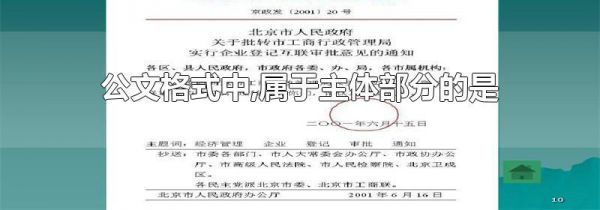 京政发〔2001〕20号
北京市人民政府
关于批转市工商行政管理局
实行企业登记互联审批意见的通知
各区、县人民政府，市政府各委、办、局，各市属机构：
公文格式中,属于主体部分的是
二〇〇一年六月十五日
主题词：经济管理 企业 登记 审批 通知
抄送：市委各部门，市人大常委会办公厅，市政协办公
厅，市高级人民法院，市人民检察院，北京卫戍
区。
各民主党派北京市委，北京市工商联。
北京市人民政府办公厅 2001年6月16日
10